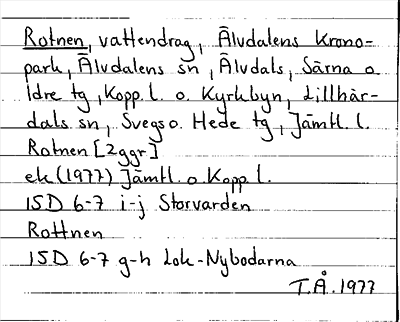 Rotnen, vattendrag, Älvdalens Krono=
park, Älvdalens sn, Älvdals, Särna o.
Idre tg, Kopp. l. o. Kyrkbyn, Lillhär-
dals sn, Svegs o. Hede tg, Jämtl. l.
Rotnen [2 ggr]
ek (1977) Jämtl. o. Kopp l.
15D 6-7 i-j Storvarden
Rottnen
15D 6-7 g-h Lok-Nybodarna
T.Å. 1977